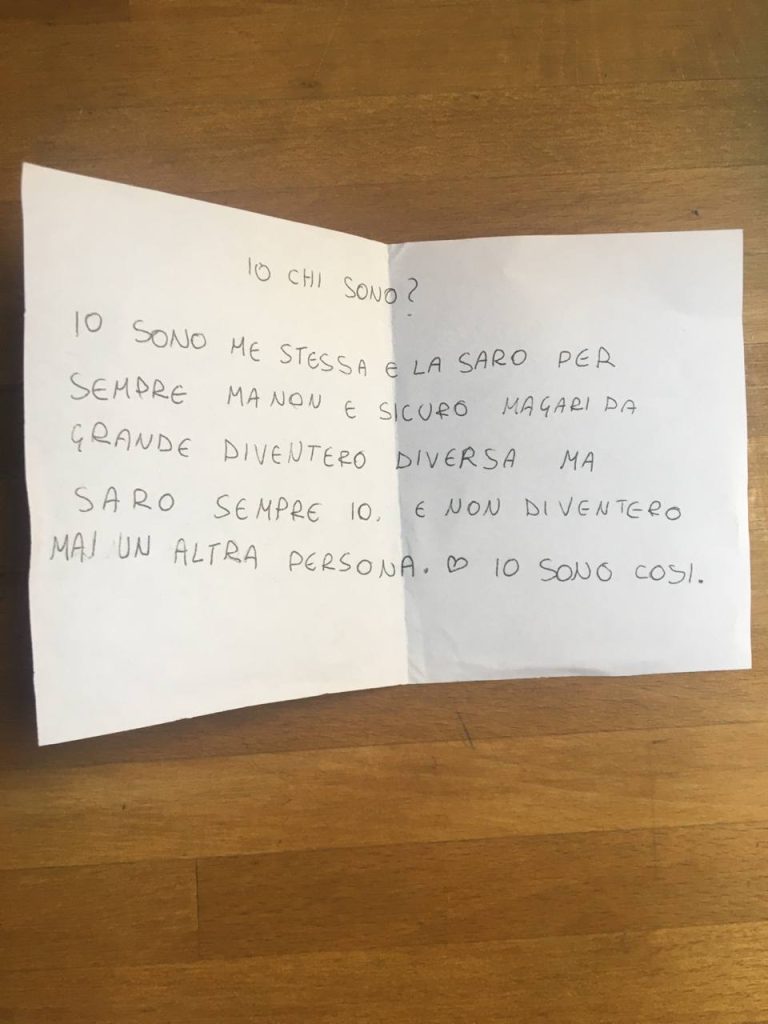 IO CHI SONO?
IO SONO ME STESSA E LA SARO PER
SEMPRE MA NON E SICURO MAGARI DA
GRANDE DIVENTERO DIVERSA MA
SARO SEMPRE IO. E NON DIVENTERO
MAI UN ALTRA PERSONA. ♡ IO SONO COSI.